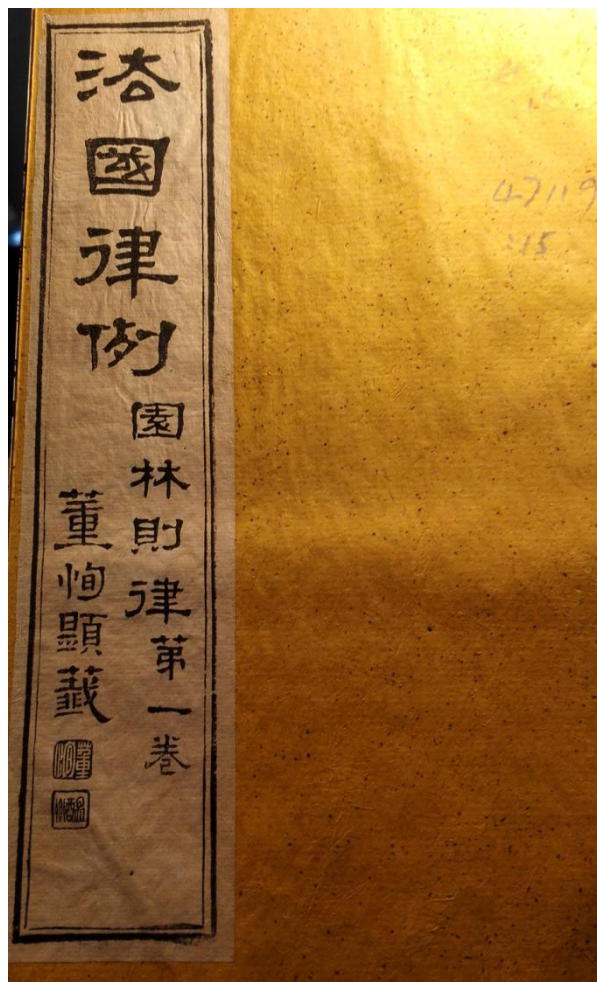 法國律例
園林則律第一卷
董恂題籤
董恂
醖卿
47119
:15